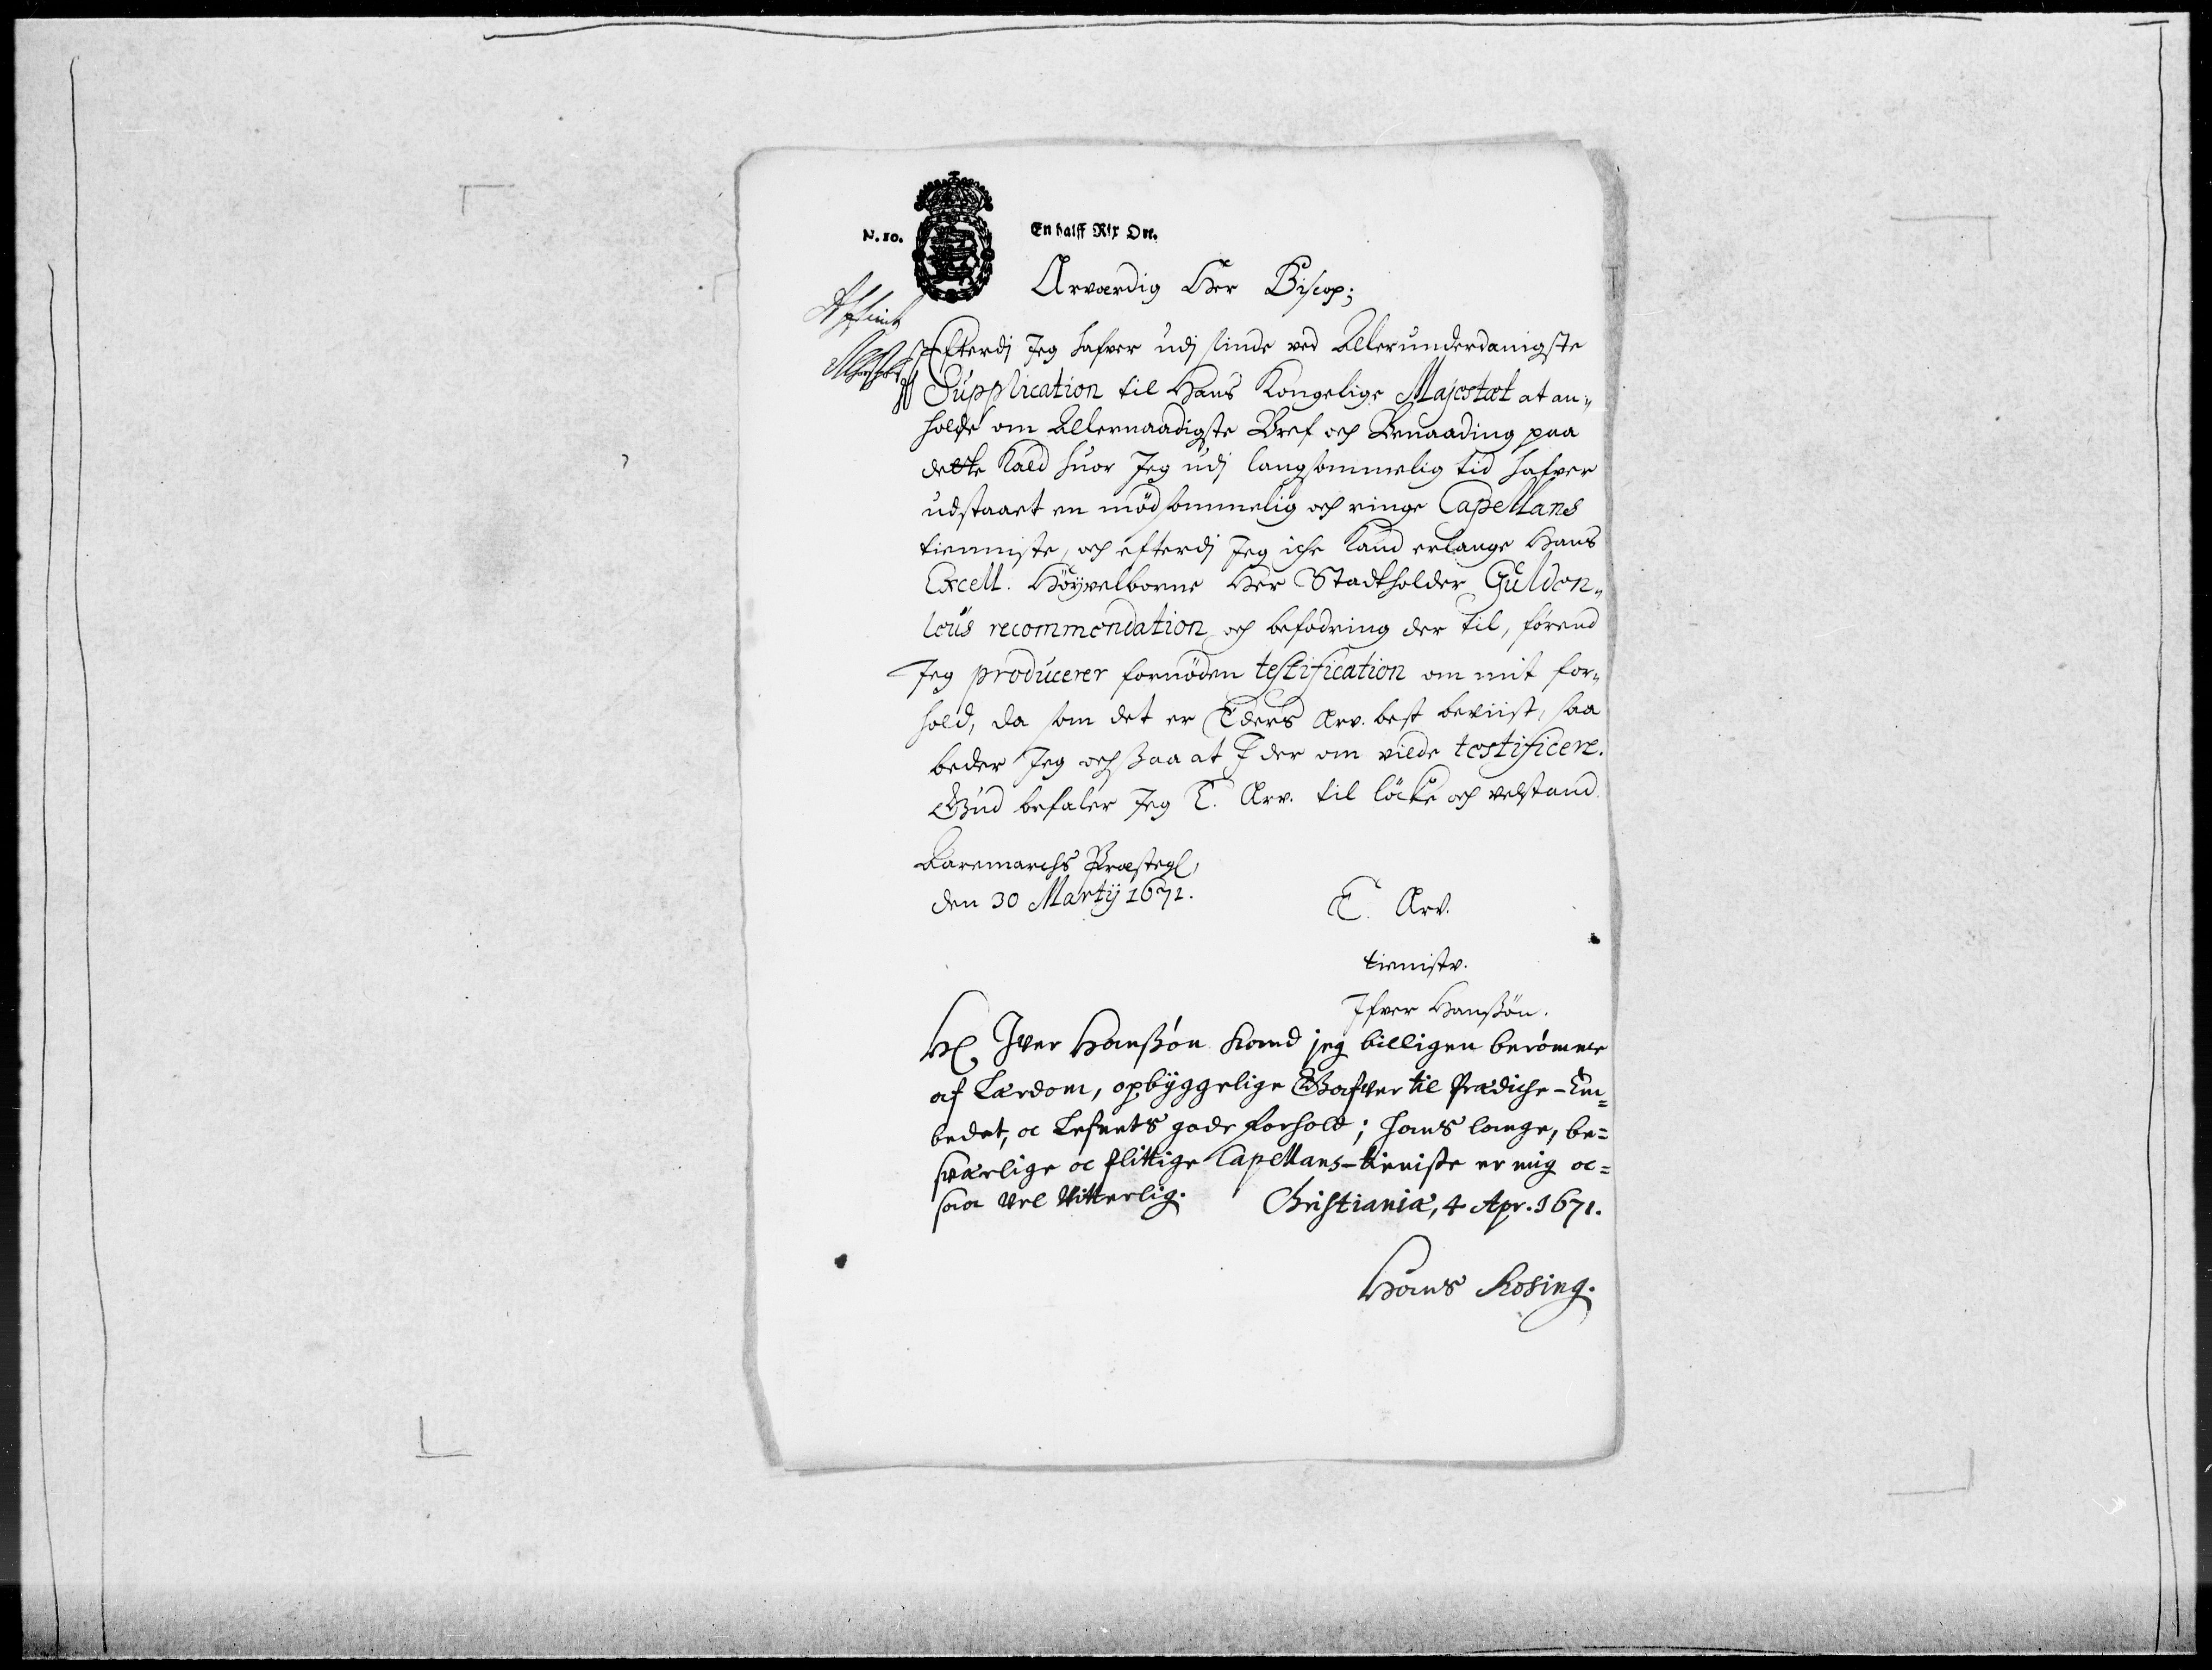 N. 10.
En halff Rix Ort.
Ærværdig Her Biscop;
Efterdj Jeg hafver udj sinde ved Allerunderdanigste
Supplication til Hans Kongelige Majestæt at an„
holde om Allernaadigste Bref och Benaading paa
dette Kald huor Jeg udj langsommelig tid hafver
udstaaet en mødsommelig och ringe Capellans
tienniste, och efterdj Jeg iche kand erlange Hans
Excell. Høÿvelborne Her Stadtholder Gulden„
leus recommendation och befodring der til, førend
Jeg producerer fornøden testification om mit for„
hold, da som det er Eders Ærv. best beviist, saa
beder Jeg ochsaa at I der om vilde testificere.
Gud befaler Jeg E. Ærv. til løcke och velstand.
Aaremarchs Præstegl,
den 30 Martij 1671.
E. Ærv.
tienistv.
Ifver Hanßøn.
Hr Iver Hanßøn kand jeg billigen berømme
af Lærdom, opbyggelige Gafver til Prædiche-Em=
bedet, oc Lefnets gode forhold; hans lange, be=
sværlige oc flittige Capellans-tieniste er mig oc=
saa vel vitterlig. Christianiæ, 4 Apr. 1671.
Hans Rosing.